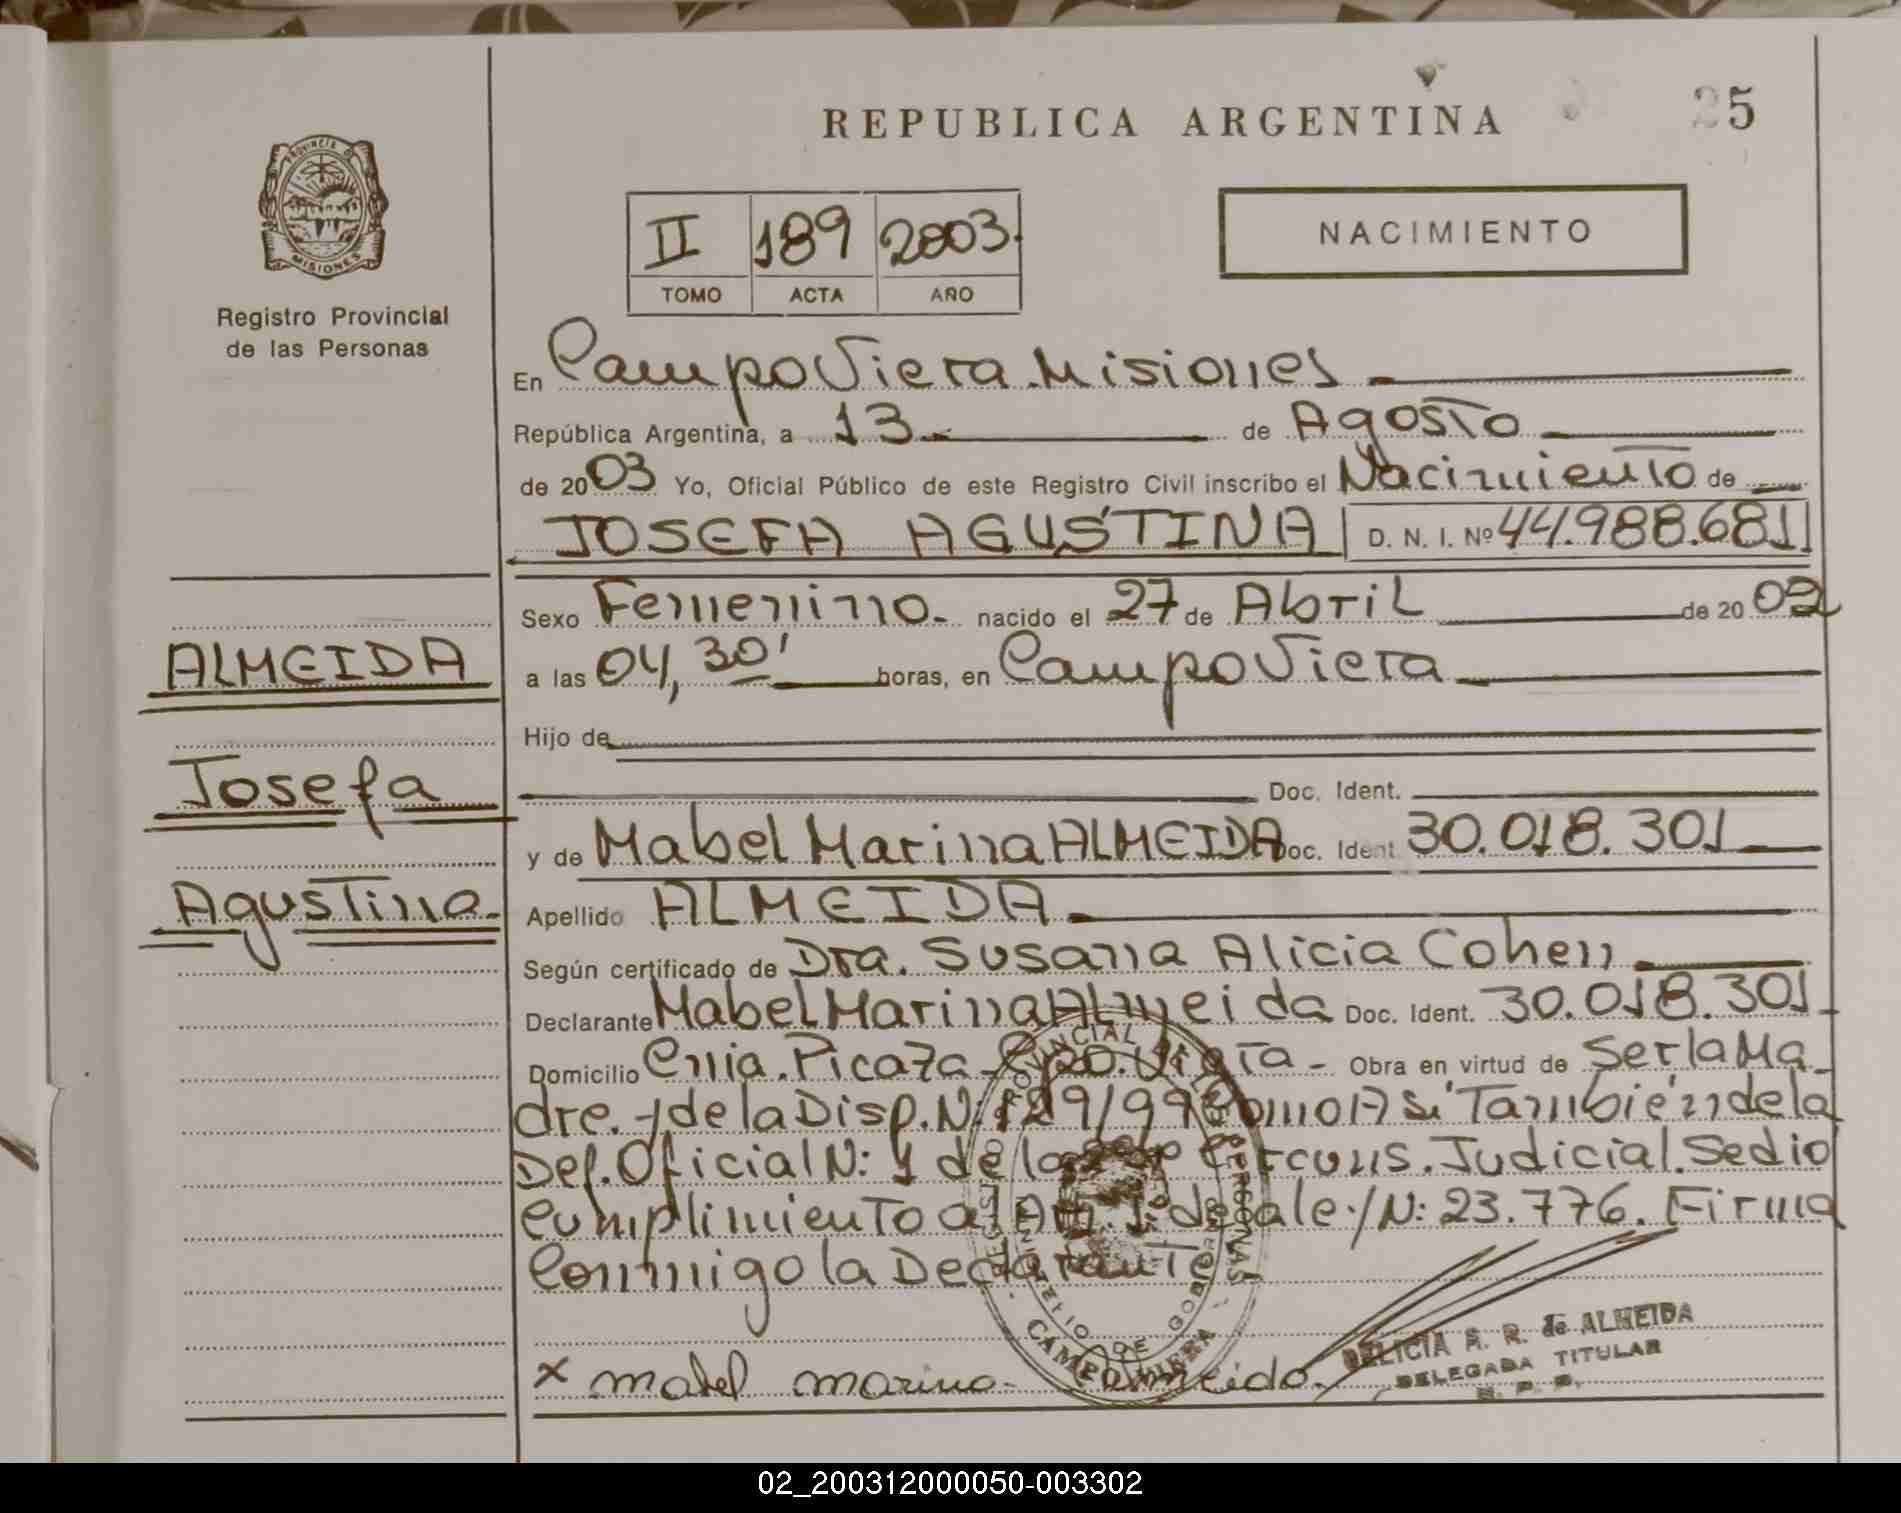 REPUBLICA ARGENTINA
25
PROVINCIA DE
MISIONES
Registro Provincial
de las Personas
II 189 2003
TOMO ACTA AÑO
NACIMIENTO
En Campo Viera Misiones
República Argentina, a 13 de Agosto
de 2003 Yo, Oficial Público de este Registro Civil inscribo el Nacimiento de
JOSEFA AGUSTINA D. N. I. Nº 44.988.681
Sexo Femenino. nacido el 27 de Abril de 2002
ALMEIDA
a las 04,30' horas, en Campo Viera
Hijo de
Josefa
Doc. Ident.
y de Mabel Marina ALMEIDA Doc. Ident. 30.018.301
Agustina
Apellido ALMEIDA
Según certificado de Dra. Susana Alicia Cohen
Declarante Mabel Marina Almeida Doc. Ident. 30.018.301
Domicilio Cnia. Picaza Cpo. Viera - Obra en virtud de Ser la Ma
dre. y de la Disp. N: /99 Como Asi También de la
Def. Oficial N: 1 de la Circuns. Judicial. Se dio
cumplimiento al Art. 1 de la le./N: 23.776. Firma
Conmigo la Declarante
x mabel marina Almeida.
DELICIA A. R. de ALMEIDA
DELEGADA TITULAR
R. P. P.
REGISTRO PROVINCIAL DE LAS PERSONAS
MINISTERIO DE GOBIERNO
CAMPO VIERA
02_200312000050-003302